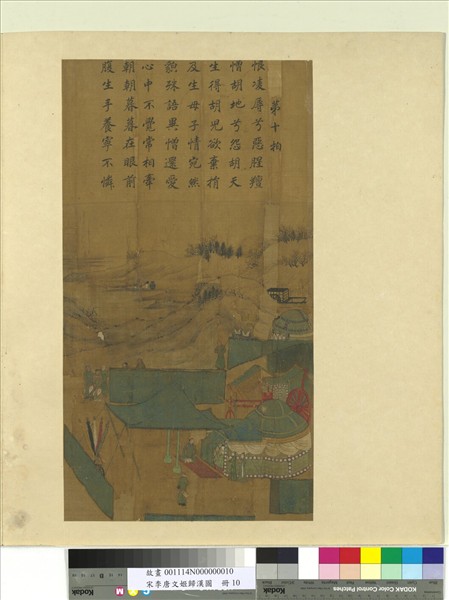 第十拍
恨凌辱兮惡腥羶
憎胡地兮怨胡天
生得胡兒欲棄捐
及生母子情宛然
貌殊語異憎還愛
心中不覺常相牽
朝朝暮暮在眼前
腹生手養寧不憐
故畫 001114N000000010
宋李唐文姬歸漢圖 冊 10
KODAK Color Control Patches
Kodak